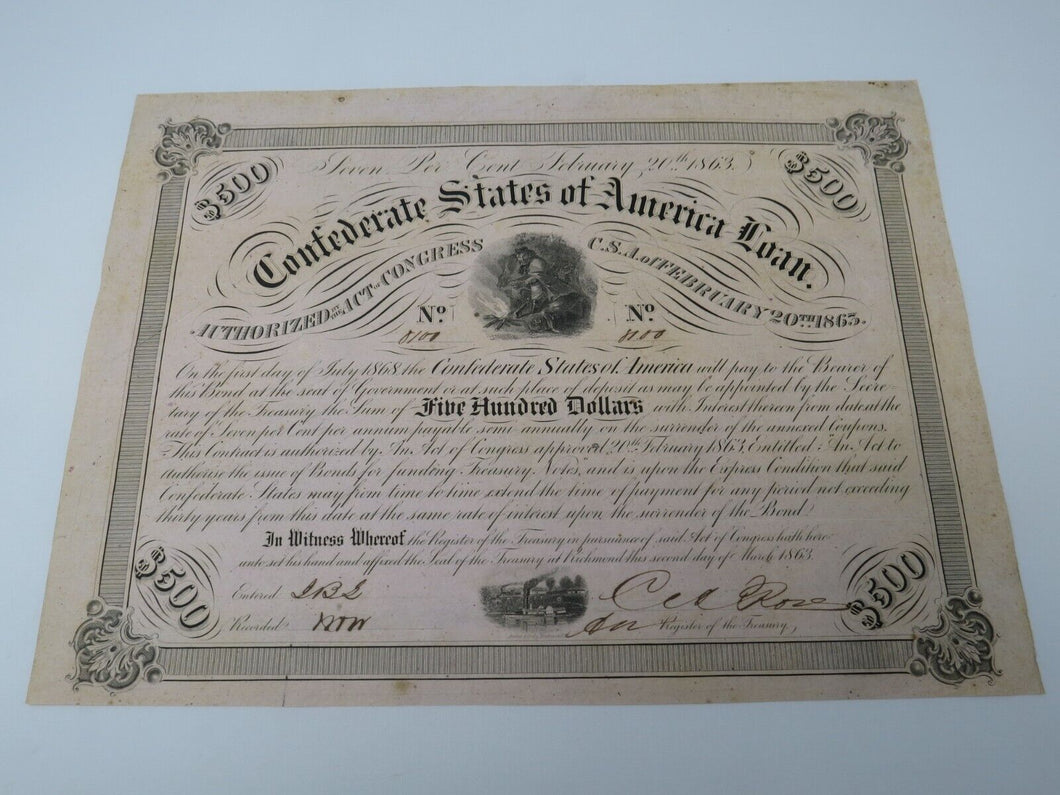 $500
Seven Per Cent February 20th 1863.
$500
Confederate States of America Loan.
AUTHORIZED BY ACT OF CONGRESS C.S.A. of FEBRUARY 20TH 1863.
No. No.
8100 8100
On the first day of July 1868 the Confederate States of America will pay to the Bearer of
this Bond at the seat of Government or at such place of deposit as may be appointed by the Secre-
tary of the Treasury the Sum of Five Hundred Dollars with Interest thereon from date at the
rate of Seven per Cent per annum payable semi annually on the surrender of the annexed Coupons.
This Contract is authorized by An Act of Congress approved 20th February 1863, Entitled: An Act to
authorise the issue of Bonds for funding Treasury Notes, and is upon the Express Condition that said
Confederate States may from time to time extend the time of payment for any period not exceeding
thirty years from this date at the same rate of interest upon the surrender of the Bond.
In Witness Whereof, the Register of the Treasury in pursuance of said Act of Congress hath here-
unto set his hand and affixed the Seal of the Treasury at Richmond this second day of March 1863.
$500
Entered
Recorded
Register of the Treasury,
$500